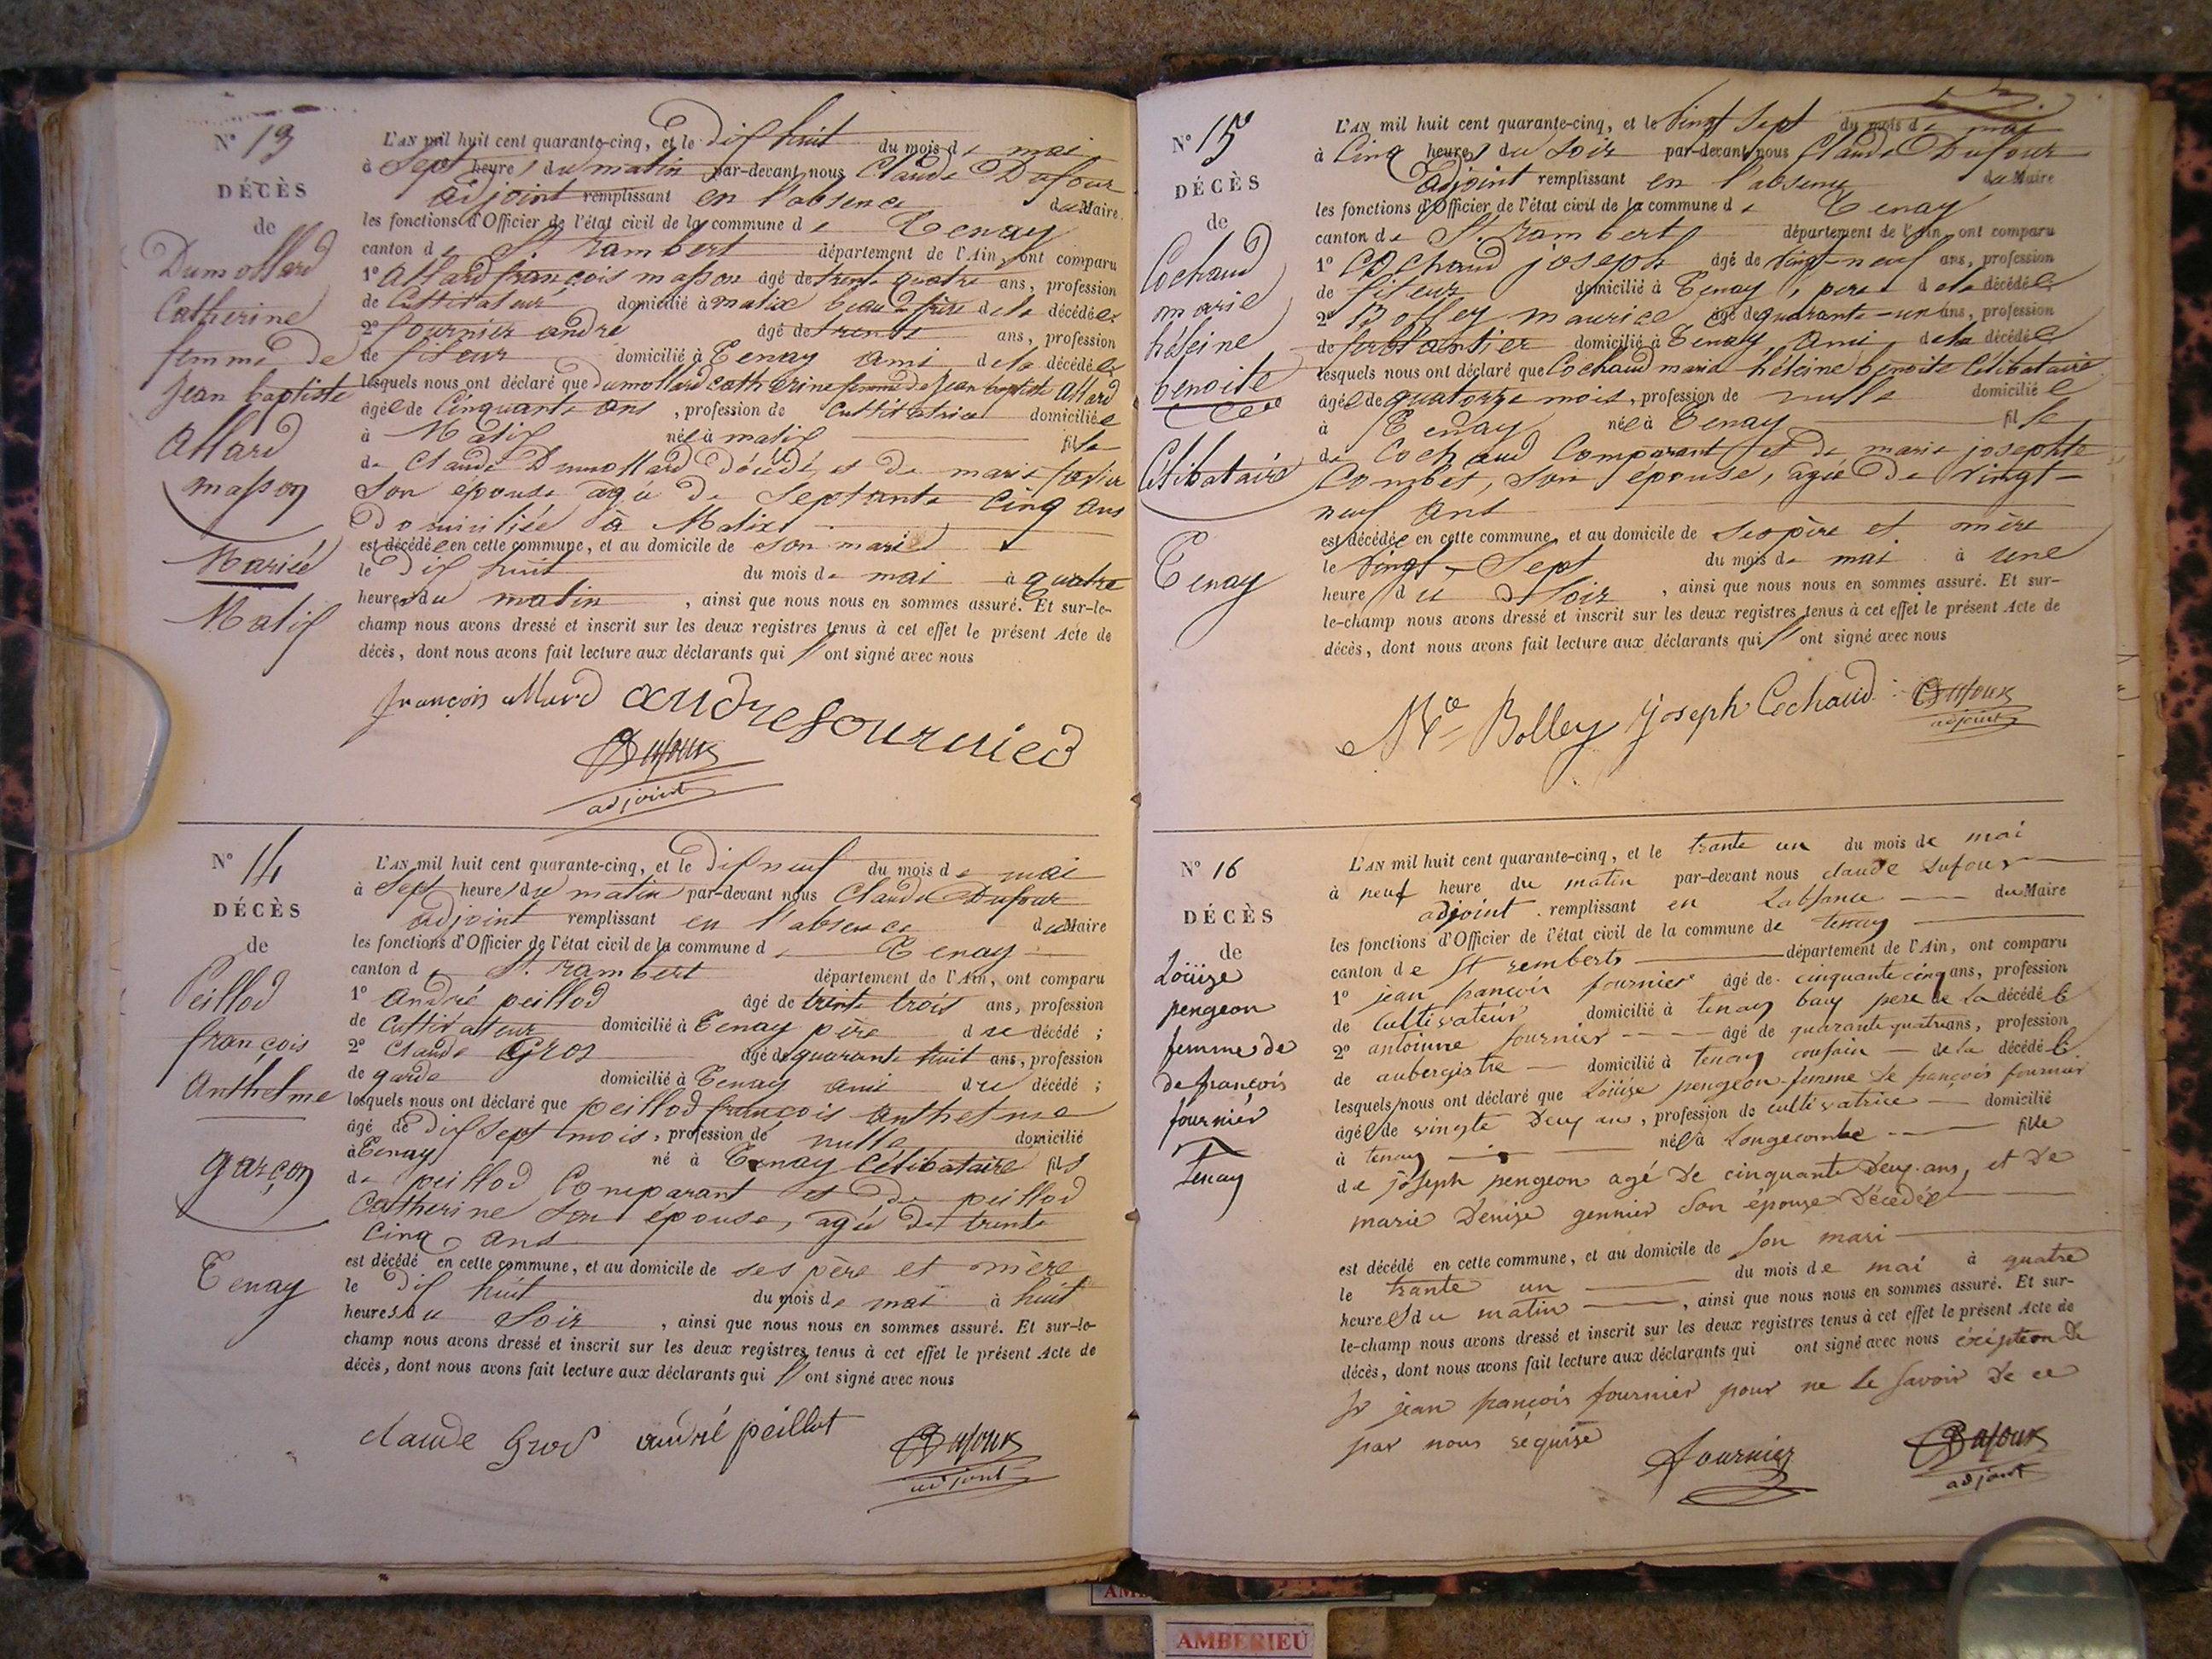 N° 13
DÉCÈS
de
Dumollard
Catherine
femme de
Jean baptiste
Allard
masson
Mariée
Matix
L'AN mil huit cent quarante-cinq, et le dix huit du mois de mai
à Sept heures du matin par-devant nous Claude Dufour
adjoint remplissant en l'absence du Maire
les fonctions d'Officier de l'état civil de la commune de Tenay
canton de St. rambert département de l'Ain, ont comparu
1° Allard françois masson âgé de trente quatre ans, profession
de Cultivateur domicilié à matix beau frère de la décédée
2° fournier andré âgé de trente ans, profession
de fileur domicilié à Tenay ami de la décédée
lesquels nous ont déclaré que dumollard catherine femme de jean baptiste Allard
âgée de Cinquante ans, profession de Cultivatrice domiciliée
à Matix née à matix fille
de Claude Dumollard décédé et de marie
son épouse agée de Septante cinq ans
Domiciliée à Matix
est décédée en cette commune, et au domicile de son marie
le dix huit du mois de mai à quatre
heures du matin, ainsi que nous nous en sommes assuré. Et sur-le-
champ nous avons dressé et inscrit sur les deux registres tenus à cet effet le présent Acte de
décès, dont nous avons fait lecture aux déclarants qui ont signé avec nous
françois allard andre fournied
Dufour
adjoint
N° 14
DÉCÈS
de
Peillod
françois
Anthelme
garçon
Tenay
L'AN mil huit cent quarante-cinq, et le dix neuf du mois de mai
à Sept heures du matin par-devant nous Claude Dufour
adjoint remplissant en l'absence du Maire
les fonctions d'Officier de l'état civil de la commune de Tenay
canton de St. rambert département de l'Ain, ont comparu
1° andré peillod âgé de trente trois ans, profession
de Cultivateur domicilié à Tenay père du décédé ;
2° Claude Gros âgé de quarante huit ans, profession
de garde domicilié à Tenay ami du décédé ;
lesquels nous ont déclaré que peillod françois anthelme
âgé de dix sept mois, profession de nulle domicilié
à Tenay né à Tenay Célibataire fils
de peillod Comparant et de peillod
Catherine son épouse, agée de trente
cinq ans
est décédé en cette commune, et au domicile de ses père et mère
le dix huit du mois de mai à huit
heures du Soir, ainsi que nous nous en sommes assuré. Et sur-le-
champ nous avons dressé et inscrit sur les deux registres tenus à cet effet le présent Acte de
décès, dont nous avons fait lecture aux déclarants qui ont signé avec nous
claude Gros andré peillot Dufour
adjoint
N° 15
DÉCÈS
de
Cochaud
marie
héleine
benoite
Célibataire
Tenay
L'AN mil huit cent quarante-cinq, et le vingt Sept du mois de mai
à Cinq heures du Soir par-devant nous Claude Dufour
adjoint remplissant en l'absence du Maire
les fonctions d'Officier de l'état civil de la commune de Tenay
canton de St. rambert département de l'Ain, ont comparu
1° Cochaud joseph âgé de vingt-neuf ans, profession
de fileur domicilié à Tenay, père de la décédée
2° Bolley maurice âgé de quarante-un ans, profession
de ferblantier domicilié à Tenay, ami, de la décédée
lesquels nous ont déclaré que Cochaud marie héleine benoite Célibataire
âgée de quatorze mois, profession de nulle domiciliée
à Tenay née à Tenay fille
de Cochaud Comparant et de marie josephte
Combet, son épouse, agée de vingt-
neuf ans
est décédée en cette commune, et au domicile de ses père et mère
le vingt-Sept du mois de mai à une
heure du Soir, ainsi que nous nous en sommes assuré. Et sur-
le-champ nous avons dressé et inscrit sur les deux registres tenus à cet effet le présent Acte de
décès, dont nous avons fait lecture aux déclarants qui ont signé avec nous
Mce Bolley Joseph Cochaud Dufour
adjoint
N° 16
DÉCÈS
de
Loüise
pengeon
femme de
de françois
fournier
tenay
L'AN mil huit cent quarante-cinq, et le trante un du mois de mai
à neuf heure du matin par-devant nous claude dufour
adjoint remplissant en Labsance du Maire
les fonctions d'Officier de l'état civil de la commune de tenay
canton de St remberts département de l'Ain, ont comparu
1° jean françois fournier âgé de cinquante cinq ans, profession
de cultivateur domicilié à tenay bau pere de la décédée
2° antoinne fournier âgé de quarante quatre ans, profession
de aubergistre domicilié à tenay coussin de la décédée
lesquels nous ont déclaré que Loüise pengeon femme de françois fournier
âgée de vingte deux ans, profession de cultivatrice domicilié
à tenay née à Longecombe fille
de joseph pengeon agé de cinquante deux ans, et de
marie denise gennier son épouse décedée
est décédé en cette commune, et au domicile de son mari
le trante un du mois de mai à quatre
heures du matin, ainsi que nous nous en sommes assuré. Et sur-
le-champ nous avons dressé et inscrit sur les deux registres tenus à cet effet le présent Acte de
décès, dont nous avons fait lecture aux déclarants qui ont signé avec nous éxéption de
Sr jean françois fournier pour ne le savoir de ce
par nous requise
fournier Dufour
adjoint
AMBERIEU